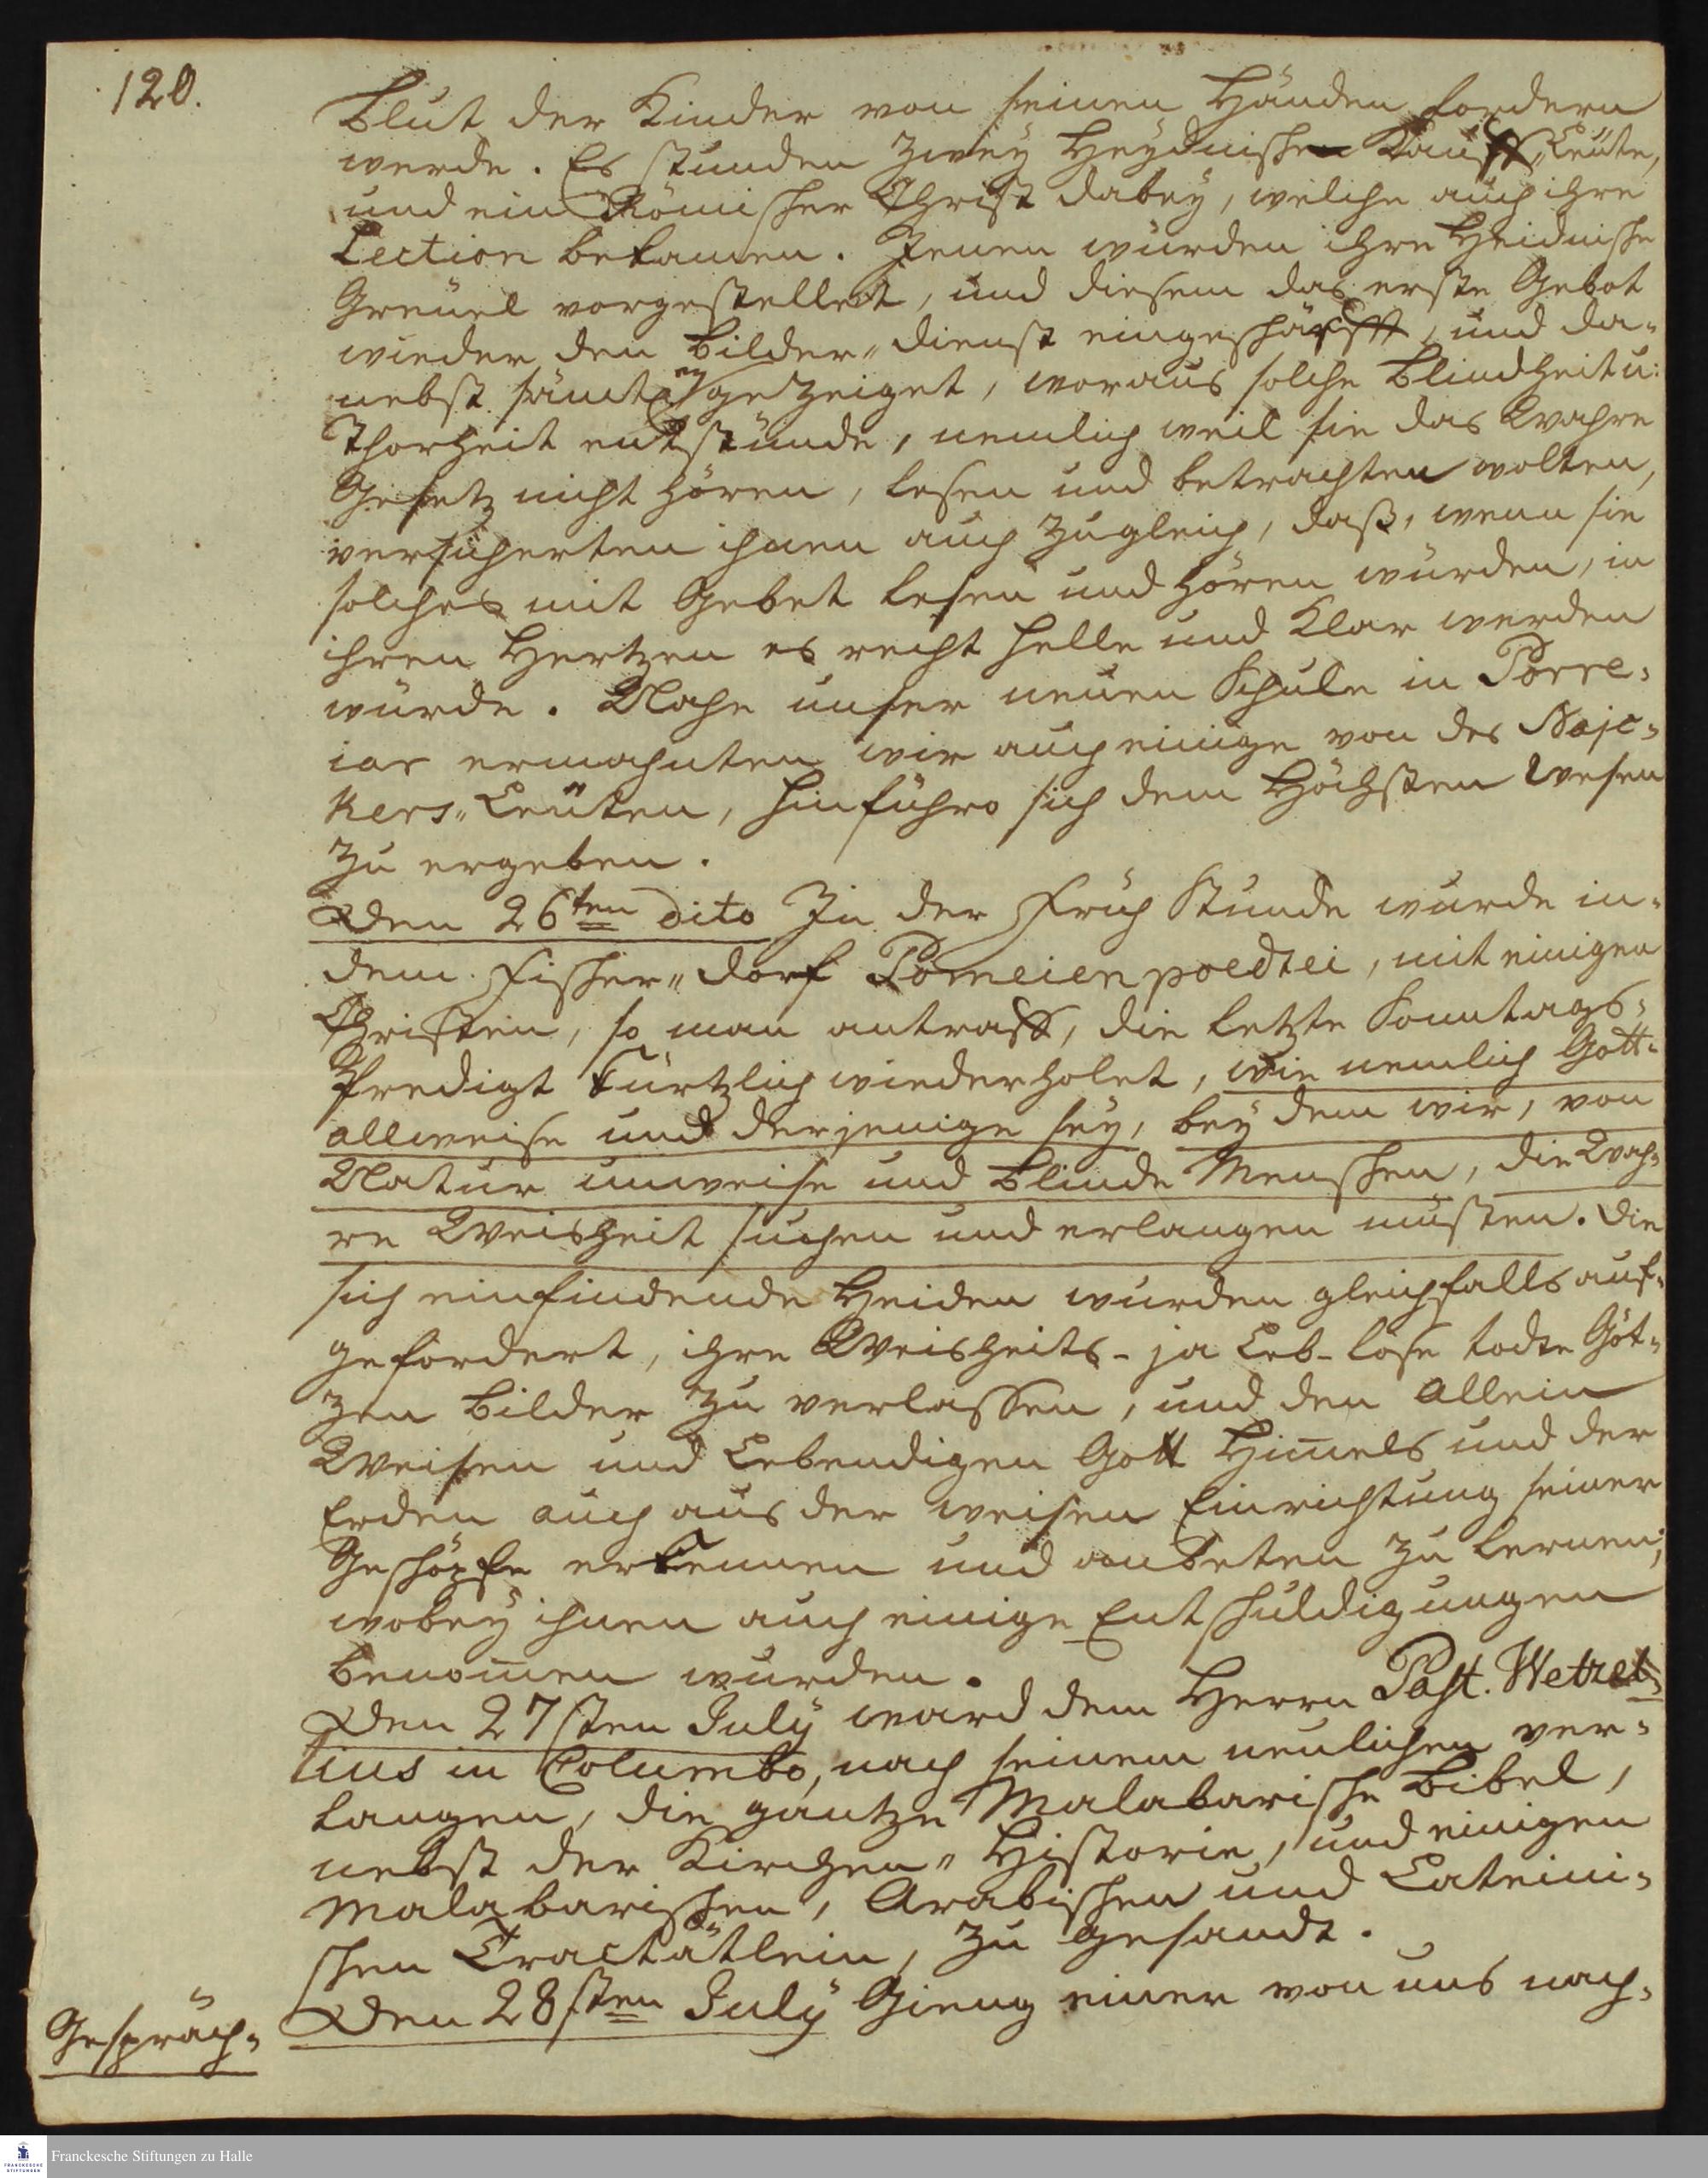 120.
Blut der Kinder von seinen Händen fordern
werde. Es stunden zwey Heydnische Kauff„Leüte,
und ein Römischer Christ dabey, welche auch ihre
Lection bekamen. Jenen wurden ihre Heidnische
Greuel vorgestellet, und diesem das erste Gebot
wieder den Bilder„dienst eingeschärfft, und da-
nebst sämtl. gezeiget, woraus solche Blindheit u:
Thorheit entstünde, nemlich weil sie das Wahre
Gesetz nicht hören, lesen und betrachten wolten,
versicherten ihnen auch zugleich, daß, wenn sie
solches mit Gebet lesen und hören würden, in
ihren Hertzen es recht helle und Klar werden
würde. Nahe unser neuen Schule in Porre-
iar ermahnten wir auch einige von des Najc-
kers„Leüten, hinführo sich dem Höchsten Wesen
zu ergeben.
Den 26ten dito In der Früh Stunde wurde in-
dem Fischer„dorf Pomeienpoedtei, mit einigen
Christen, so man antraff, die letzte Sonntags-
Predigt kürtzlich wiederholet, wie nemlich Gott-
allweise und derjenige sey, bey dem wir, von
Natur unweise und blinde Menschen, die Wah-
re Weisheit suchen und erlangen müsten. Die
sich einfindende Heiden wurden gleichfalls auf-
gefordert, ihre Weisheits- ja Leb-lose todte Göt-
zen Bilder zu verlassen, und den Allein
Weisen und Lebendigen Gott Himels und der
Erden auch aus der weisen Einrichtung seiner
Geschöpfe erkennen und anbeten zu lernen;
wobey ihnen auch einige Entschuldigungen
benomen wurden.
Den 27sten July ward dem Herrn Past. Wetzel-
lius in Columbo, nach seinem neulichen ver-
langen, die gantze Malabarische Bibel,
nebst der Kirchen„Historie, und einigen
Malabarischen, Arabischen und Lateini-
schen Tractätlein, zu gesandt.
Gespräch- Den 28sten July Gieng einer von uns nach-
Franckesche Stiftungen zu Halle